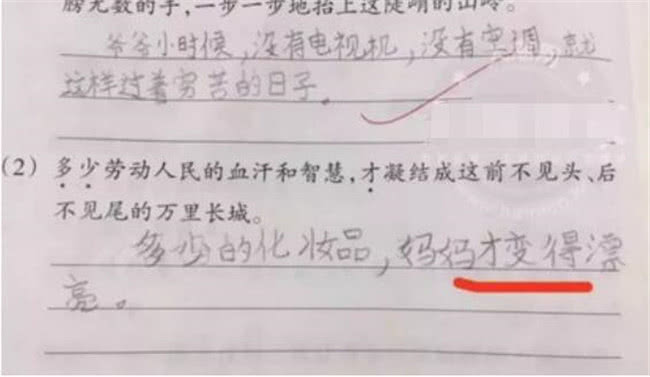 膀无数的手，一步一步地抬上这陡峭的山岭。
爷爷小时候，没有电视机，没有空调，就
这样过着穷苦的日子。
(2) 多少劳动人民的血汗和智慧，才凝结成这前不见头、后
不见尾的万里长城。
多少的化妆品，妈妈才变得漂
亮。